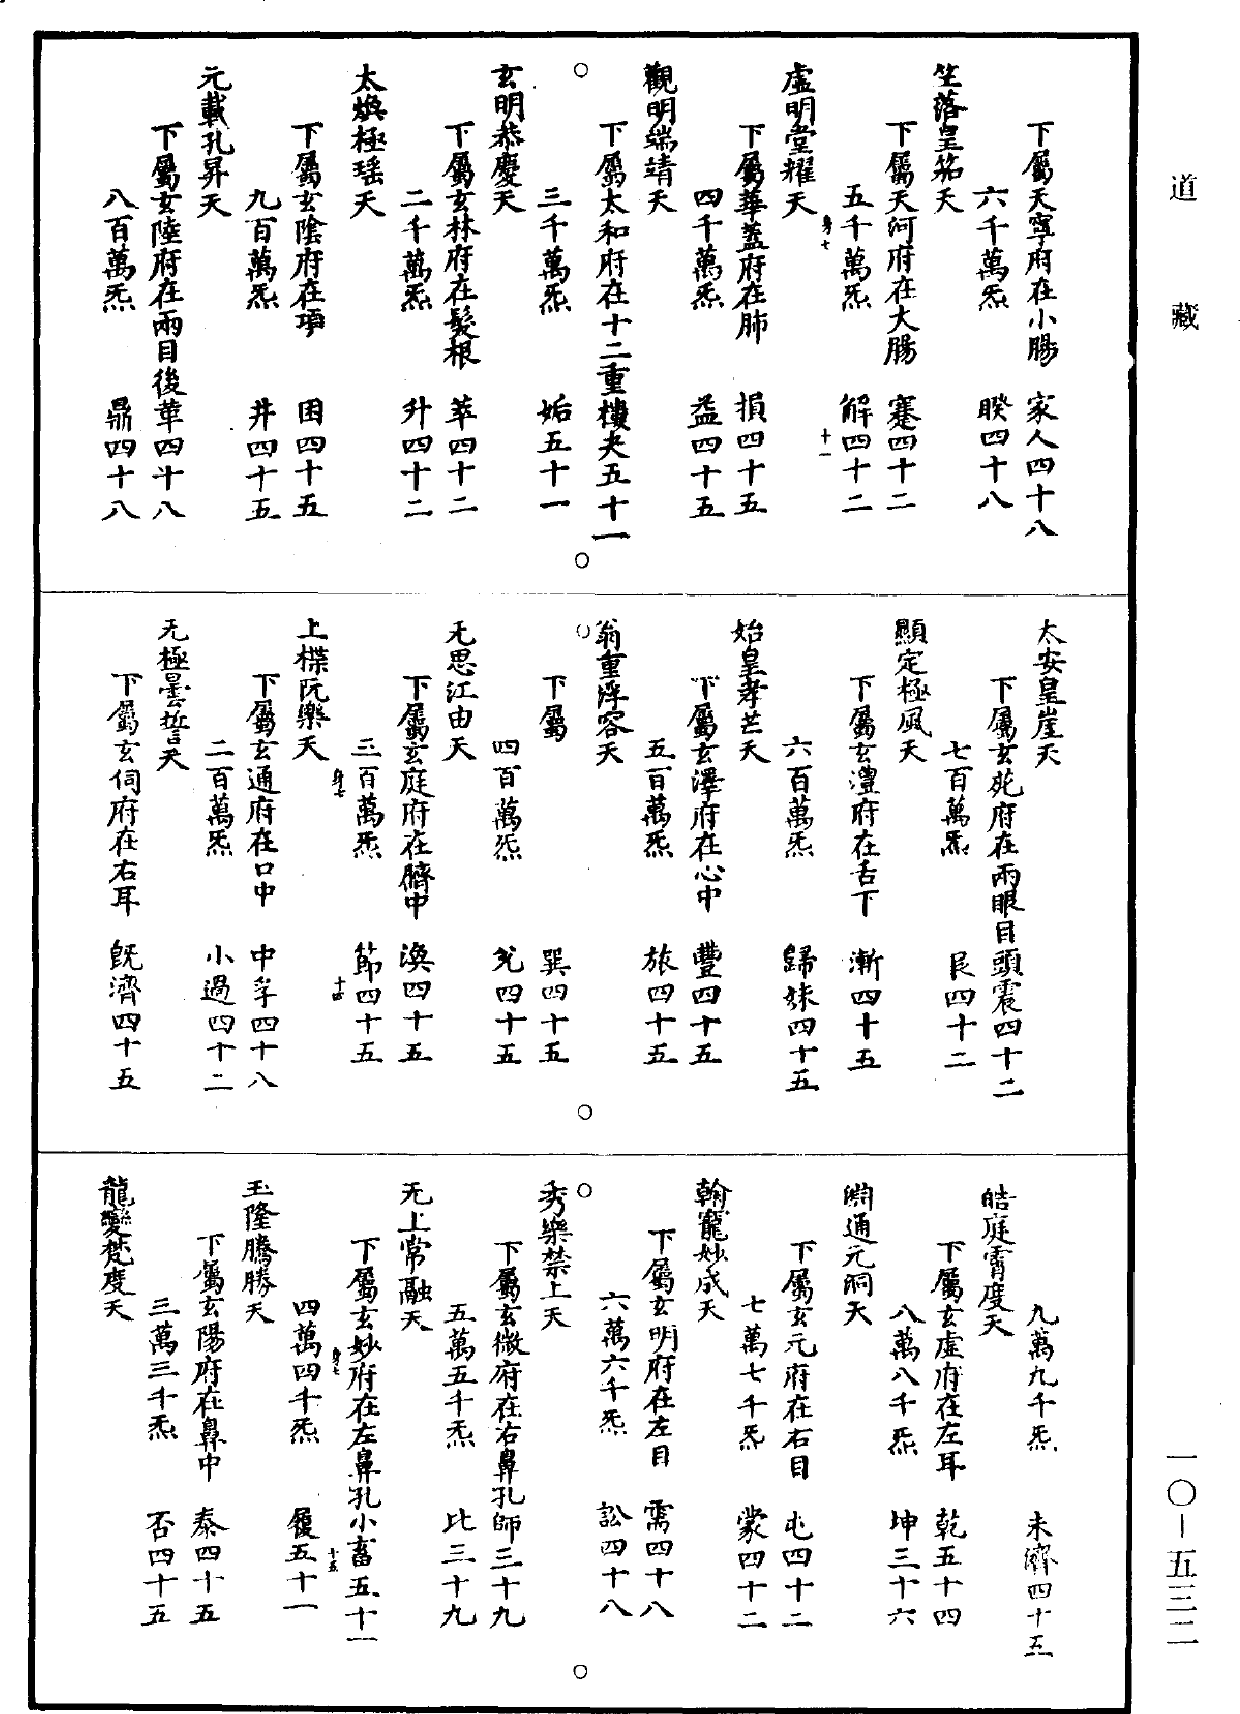 道藏
下屬天寧府在小腸　家人四十八
六千萬炁　睽四十八
竺落皇笳天
下屬天河府在大腸　蹇四十二
五千萬炁　解四十二
虛明堂耀天
身七　十一
下屬華蓋府在肺　損四十五
四千萬炁　益四十五
觀明端靖天
下屬太和府在十二重樓夬五十一
三千萬炁　姤五十一
玄明恭慶天
下屬玄林府在髮根　萃四十二
二千萬炁　升四十二
太煥極瑤天
下屬玄陰府在項　困四十五
九百萬炁　井四十五
元載孔昇天
下屬玄陸府在兩目後革四十八
八百萬炁　鼎四十八
太安皇崖天
下屬玄苑府在兩眼目頭震四十二
七百萬炁　艮四十二
顯定極風天
下屬玄澧府在舌下　漸四十五
六百萬炁　歸妹四十五
始皇孝芒天
下屬玄澤府在心中　豐四十五
五百萬炁　旅四十五
翁重浮容天
下屬　巽四十五
四百萬炁　兌四十五
无思江由天
下屬玄庭府在臍中　渙四十五
三百萬炁　節四十五
身七　十四
上揲阮樂天
下屬玄通府在口中　中孚四十八
二百萬炁　小過四十二
无極曇誓天
下屬玄伺府在右耳　既濟四十五
九萬九千炁　未濟四十五
皓庭霄度天
下屬玄虛府在左耳　乾五十四
八萬八千炁　坤三十六
淵通元洞天
下屬玄元府在右目　屯四十二
七萬七千炁　蒙四十二
翰寵妙成天
下屬玄明府在左目　需四十八
六萬六千炁　訟四十八
秀樂禁上天
下屬玄微府在右鼻孔師三十九
五萬五千炁　比三十九
无上常融天
下屬玄妙府在左鼻孔小畜五十一
身七　十五
四萬四千炁　履五十一
玉隆騰勝天
下屬玄陽府在鼻中　泰四十五
三萬三千炁　否四十五
龍變梵度天
一〇－五三二